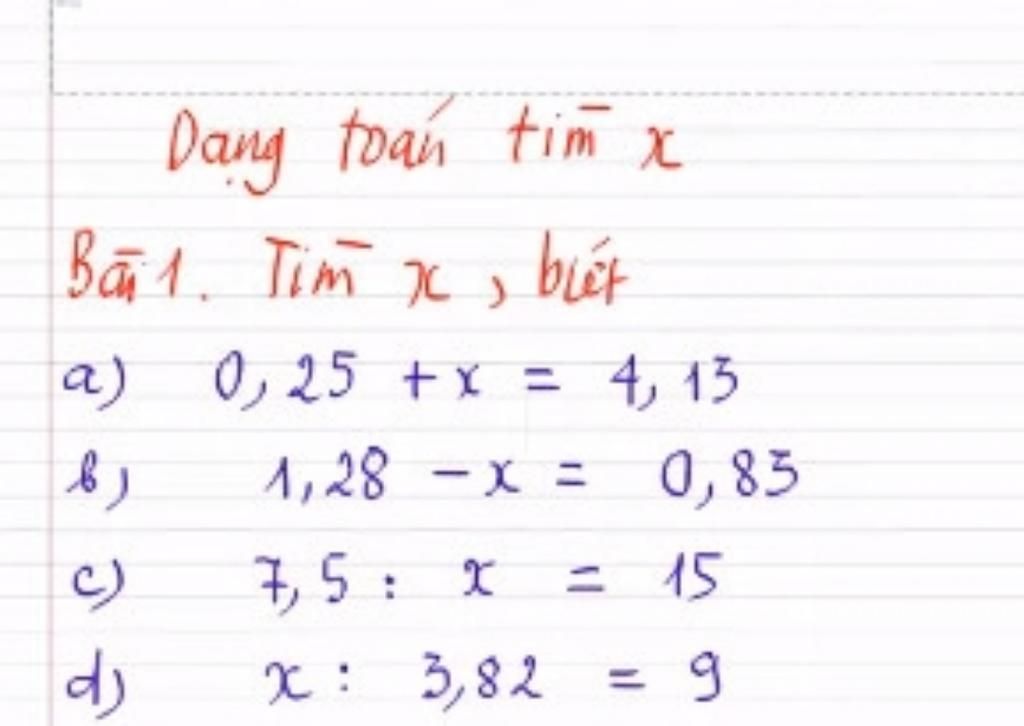 Dạng toán tìm x
Bài 1. Tìm x, biết
a) 0,25 + x = 4,13
b) 1,28 - x = 0,83
c) 7,5 : x = 15
d) x : 3,82 = 9